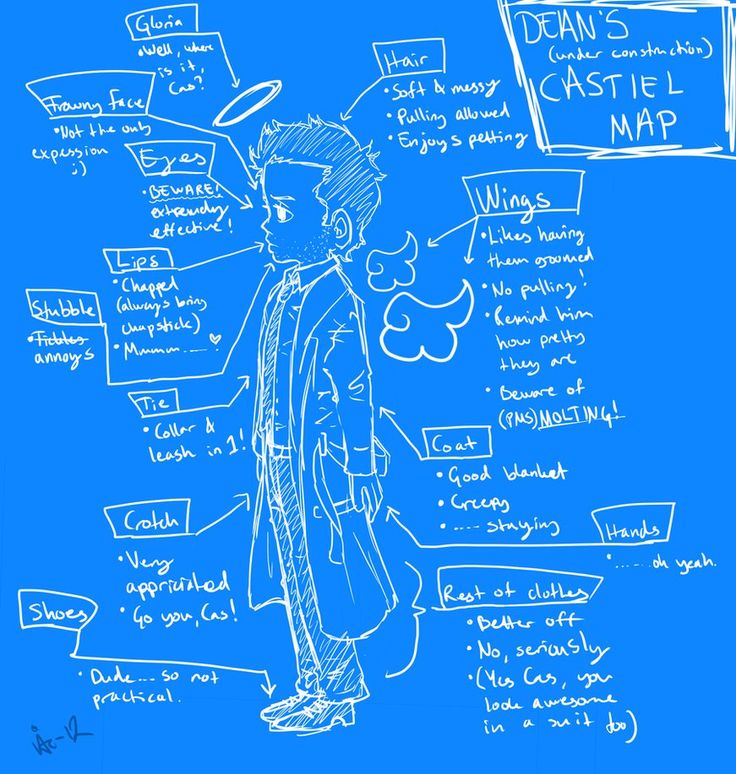 DEAN'S
(under construction)
CASTIEL
MAP
Gloria
• Well, where
is it,
Cas?
Hair
• Soft & messy
• Pulling allowed
• Enjoys petting
Frowny face
• Not the only
expession
;)
Eyes
• BEWARE!
extremely
effective!
Wings
• Likes having
them groomed
• No pulling!
• Remind him
how pretty
they are
• Beware of
(PMS) MOLTING!
Lips
• Chapped
(always bring
chapstick)
• Mmmm.....
Stubble
• Tickles
annoys
Tie
• Collar &
leash in 1!
Coat
• Good blanket
• Creepy
• .... staying
Crotch
• Very
appriciated
• Go you, Cas!
Hands
• ......oh yeah.
Shoes
• Dude.... so not
practical.
Rest of clothes
• Better off
• No, seriously
• (Yes Cas, you
look awesome
in a suit too)